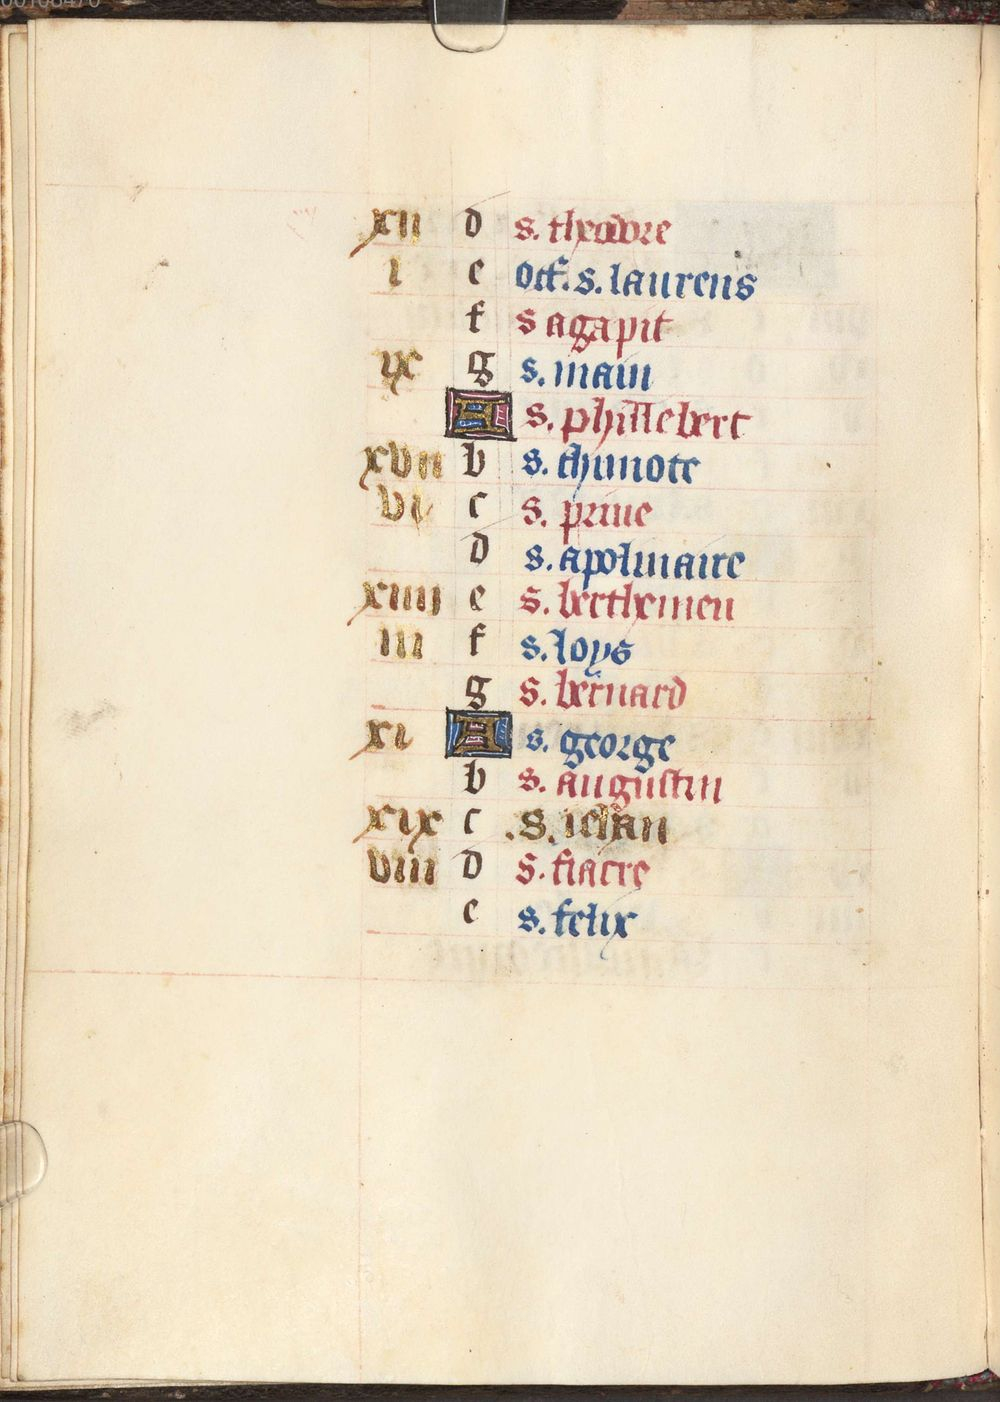 xii d s. theodore
i e oct. s. laurens
f s agapit
ix g s. main
A s. phillebert
xvii b s. thimote
vi c s. priue
d s. apolinaire
xiiii e s. berthemieu
iii f s. loys
g s. bernard
xi A s. george
b s. augustin
xix c .s. iehan
viii d s. fiacre
e s. felix